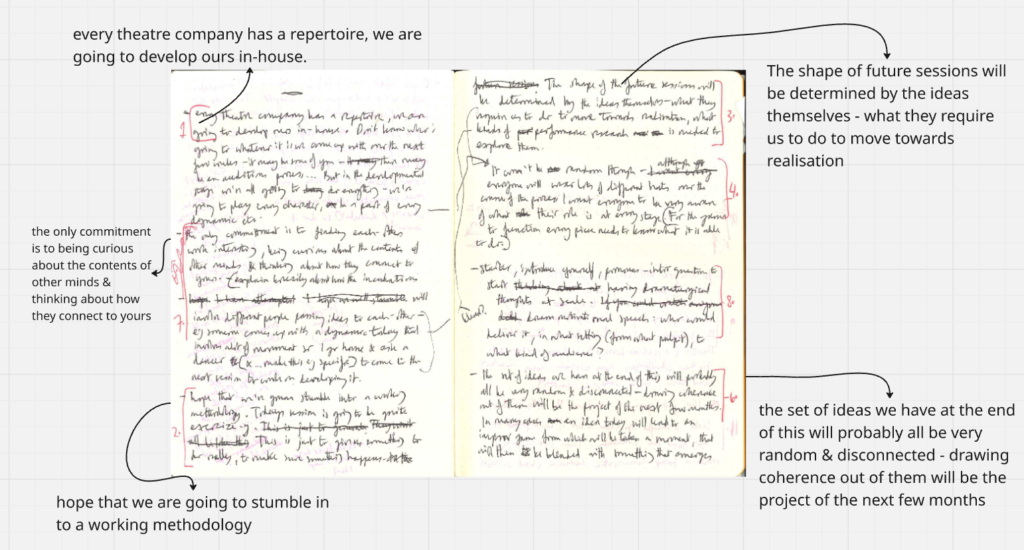 every theatre company has a repertoire, we are
going to develop ours in-house.
The shape of future sessions will
be determined by the ideas
themselves - what they require
us to do to move towards
realisation
the only commitment
is to being curious
about the contents of
other minds &
thinking about how
they connect to yours
hope that we are going to stumble in
to a working methodology
the set of ideas we have at the end
of this will probably all be very
random & disconnected - drawing
coherence out of them will be the
project of the next few months
every theatre company has a repertoire, we are
going to develop ours in-house. Don't know who's
going to whatever it is we come up with over the next
few weeks - it may be some of you - there may
be an audition process... But in the developmental
stage we're all going to do everything - we're
going to play every character, be a part of every
dynamic etc.
- the only commitment is to finding each other's
work interesting, being curious about the contents of
other minds & thinking about how they connect to
yours. (explain briefly about how the incubations
will
involve different people passing ideas to each other
eg someone comes up with a dynamic today that
involves a lot of movement so I go home & ask a
dancer (x... make this eg specific) to come to the
next session to work on developing it.
- hope that we're gonna stumble into a working
methodology. Today's session is going to be quite
exercise-y. This is just to give us something to
do really, to make sure something happens.
The shape of the future sessions will
be determined by the ideas themselves - what they
require us to do to move towards realisation, what
kinds of performance research is needed to
explore them.
- It won't be random though - although
everyone will wear lots of different hats over the
course of the process I want everyone to be very aware
of what their role is at every stage (For the game
to function every piece needs to know what it is able
to do.)
- starter, introduce yourself, pronouns - intro question to
start having dramaturgical
thoughts at scale.
dream motivational speech: who would
deliver it, in what setting (from what pulpit), to
what kind of audience?
- the set of ideas we have at the end of this will probably
all be very random & disconnected - drawing coherence
out of them will be the project of the next few months.
In many cases an idea today will lead to an
improv game from which will be taken a moment, that
will then be blended with something that emerges
1.
7.
2.
3.
4.
8.
6.